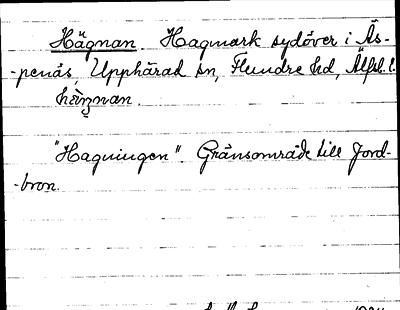 Hägnan. Hagmark sydöver i Äs-
-penås, Upphärad sn, Flundre hd, Älfsb. l.
hæ̀ŋnan.
"Hagningen". Gränsområde till Jord-
-bron.